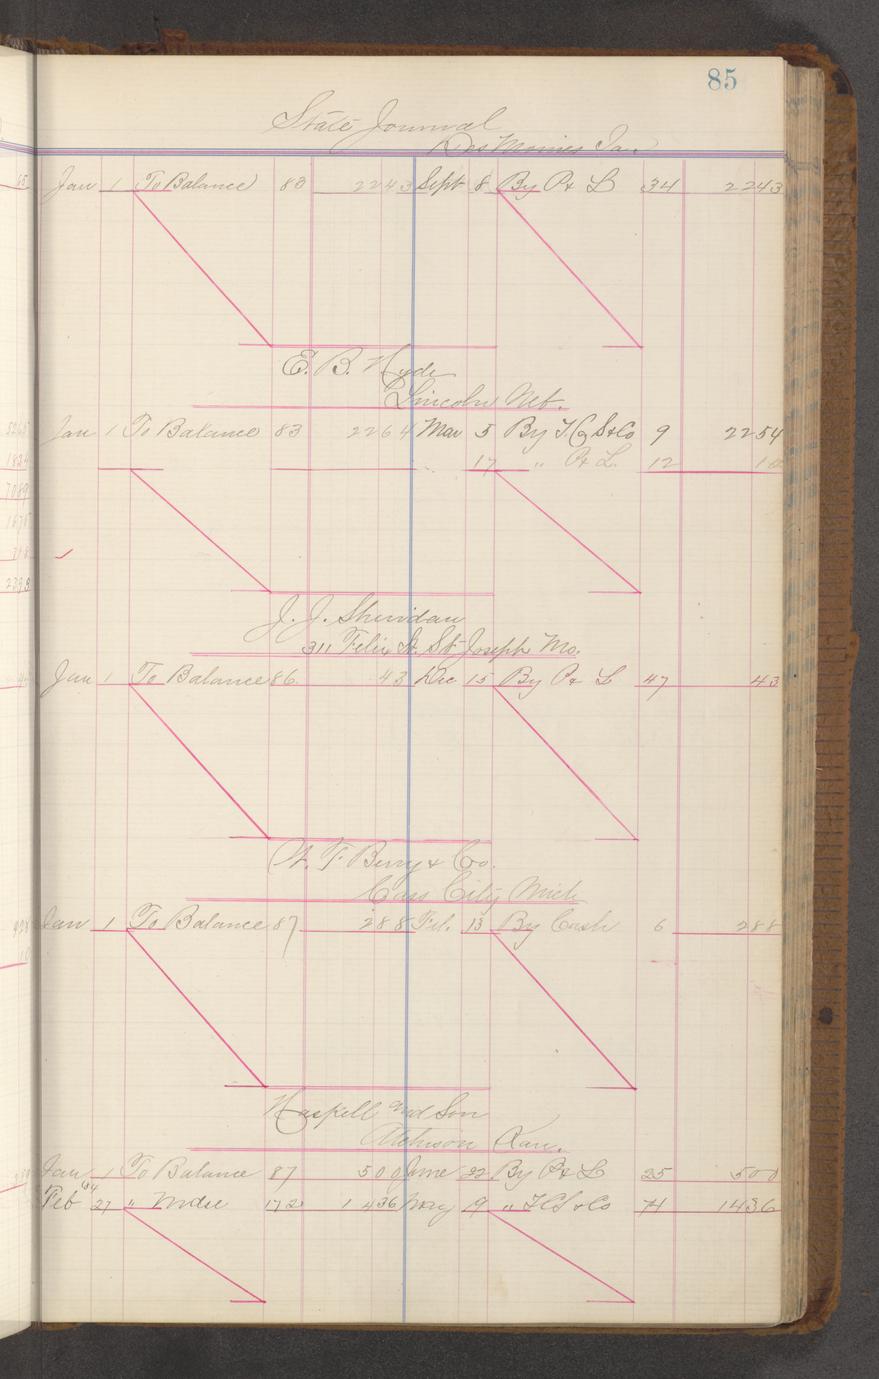 85
State Journal
Des Moines Iaa
Jan 1 To Balance 83 2243 Sept 8 By P & L 34 2243
E. B. Hyde
Lincoln Neb.
Jan 1 To Balance 83 2264 Mar 5 By T. C S & Co 9 2254
17 " P & L. 12 10
J. J. Sheridan
311 Felix St. St Joseph Mo.
Jan 1 To Balance 86 43 Dec 15 By P & L 47 43
W. F. Berry & Co.
Cass City Mich
Jan 1 To Balance 87 288 Feb. 13 By Cash 6 288
Haskell and Son
Atchison Kan.
Jan 1 To Balance 87 500 June 22 By P & L 25 500
Feb '84 27 " Mdse 172 1436 9 " T C S & Co 1436